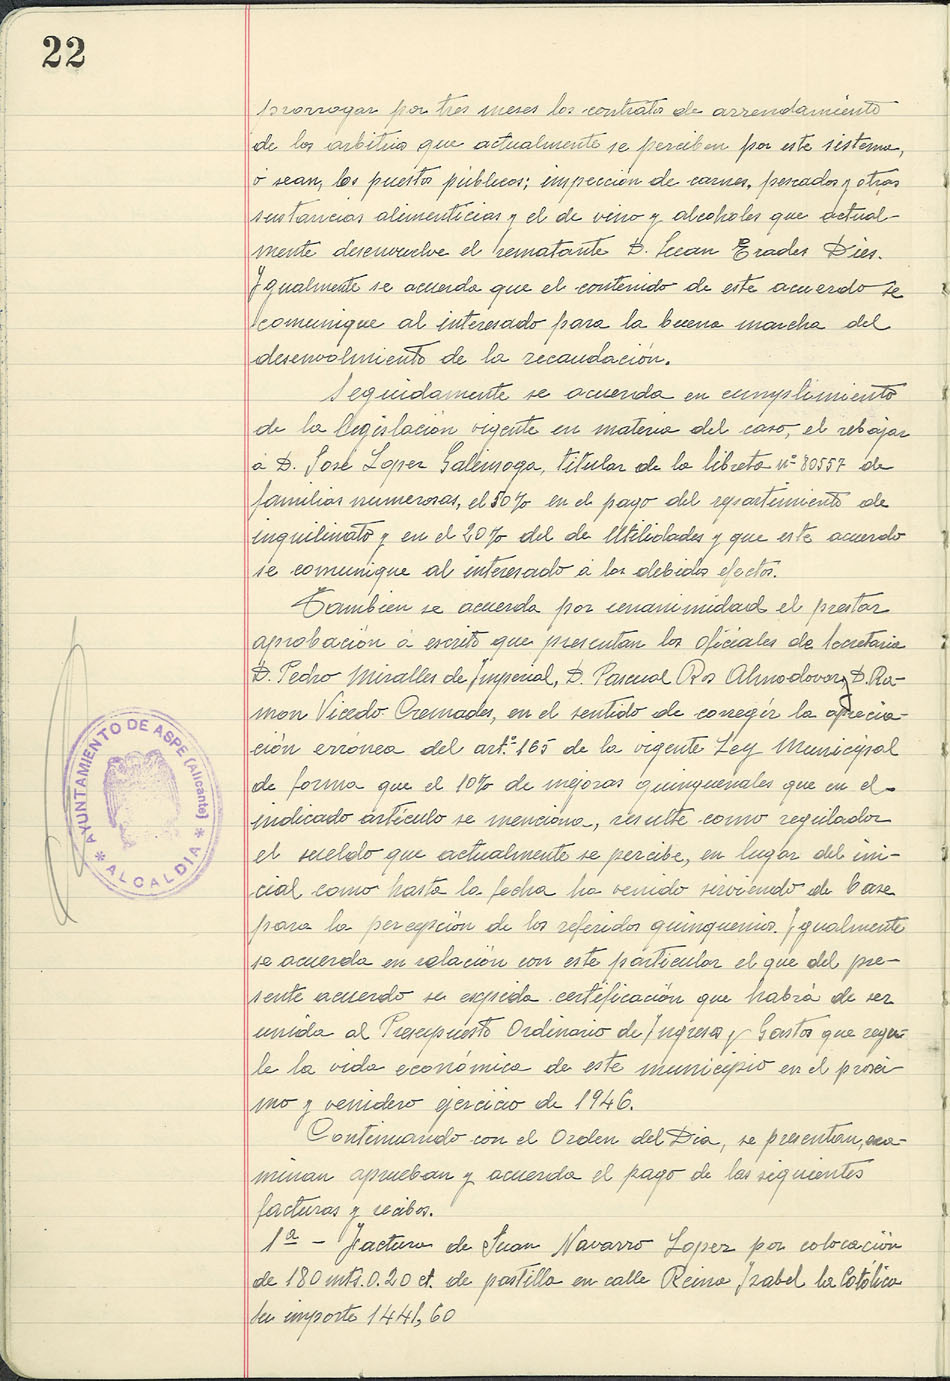 22
prorrogar por tres meses los contratos de arrendamiento
de los arbitrios que actualmente se perciben por este sistema,
ó sean, los puestos públicos; inspección de carnes, pescados y otras
sustancias alimenticias y el de vino y alcoholes que actual-
mente desenvuelve el rematante D. Juan Erades Dies.
Igualmente se acuerda que el contenido de este acuerdo se
comunique al interesado para la buena marcha del
desenvolmiento de la recaudación.
Seguidamente se acuerda en cumplimiento
de la legislación vigente en materia del caso, el rebajar
a D. José Lopez Galinsoga, titular de la libreta nº 80557 de
familias numerosas, el 50% en el pago del repartimiento de
inquilinato y en el 20% del de Utilidades y que este acuerdo
se comunique al interesado a los debidos efectos.
Tambien se acuerda por unanimidad el prestar
aprobación a escrito que presentan los oficiales de Secretaria
D. Pedro Miralles de Imperial, D. Pascual Ros Almodovar y D. Ra-
mon Vicedo Cremades, en el sentido de corregir la aprecia-
ción errónea del artº 165 de la vigente Ley Municipal
de forma que el 10% de mejoras quinquenales que en el
indicado artículo se menciona, resulte como regulador
el sueldo que actualmente se percibe, en lugar del ini-
cial como hasta la fecha ha venido sirviendo de base
para la percepción de los referidos quinquenios. Igualmente
se acuerda en relación con este particular el que del pre-
sente acuerdo se expida certificación que habrá de ser
unida al Presupuesto Ordinario de Ingresos y Gastos que regu-
le la vida económica de este municipio en el proxi-
mo y venidero ejercicio de 1946.
Continuando con el Orden del Dia, se presentan, exa-
minan aprueban y acuerda el pago de las siguientes
facturas y recibos.
1ª - Factura de Juan Navarro Lopez por colocación
de 180 mts. 0.20 ct. de pastilla en calle Reina Isabel la Católica
su importe 1441,60
AYUNTAMIENTO DE ASPE (Alicante)
* ALCALDIA *